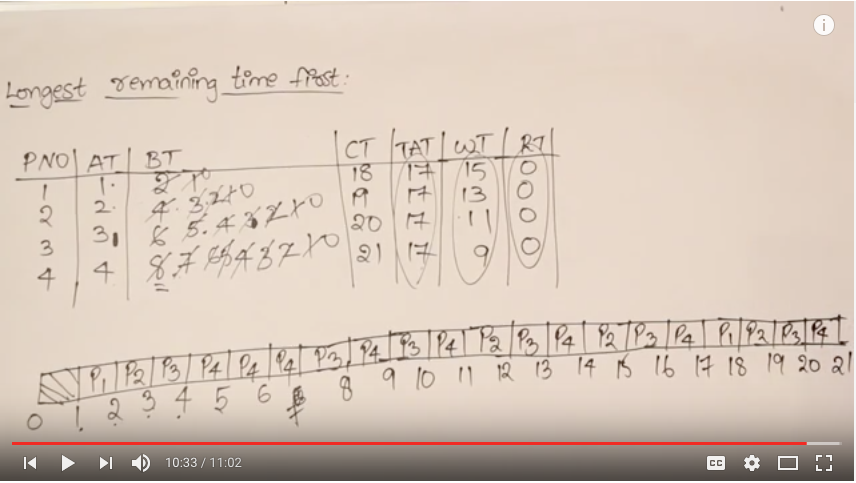 Longest remaining time first:
PNO AT BT CT TAT WT RT
1 1. 2 1 0 18 17 15 0
2 2. 4. 3. 2 1 0 19 17 13 0
3 3 6 5. 4 3 2 1 0 20 17 11 0
4 4 8 7 6 5 4 3 2 1 0 21 17 9 0
P1 P2 P3 P4 P4 P4 P3 P4 P3 P4 P2 P3 P4 P2 P3 P4 P1 P2 P3 P4
0 1 2 3 4 5 6 7 8 9 10 11 12 13 14 15 16 17 18 19 20 21
10:33 / 11:02
CC